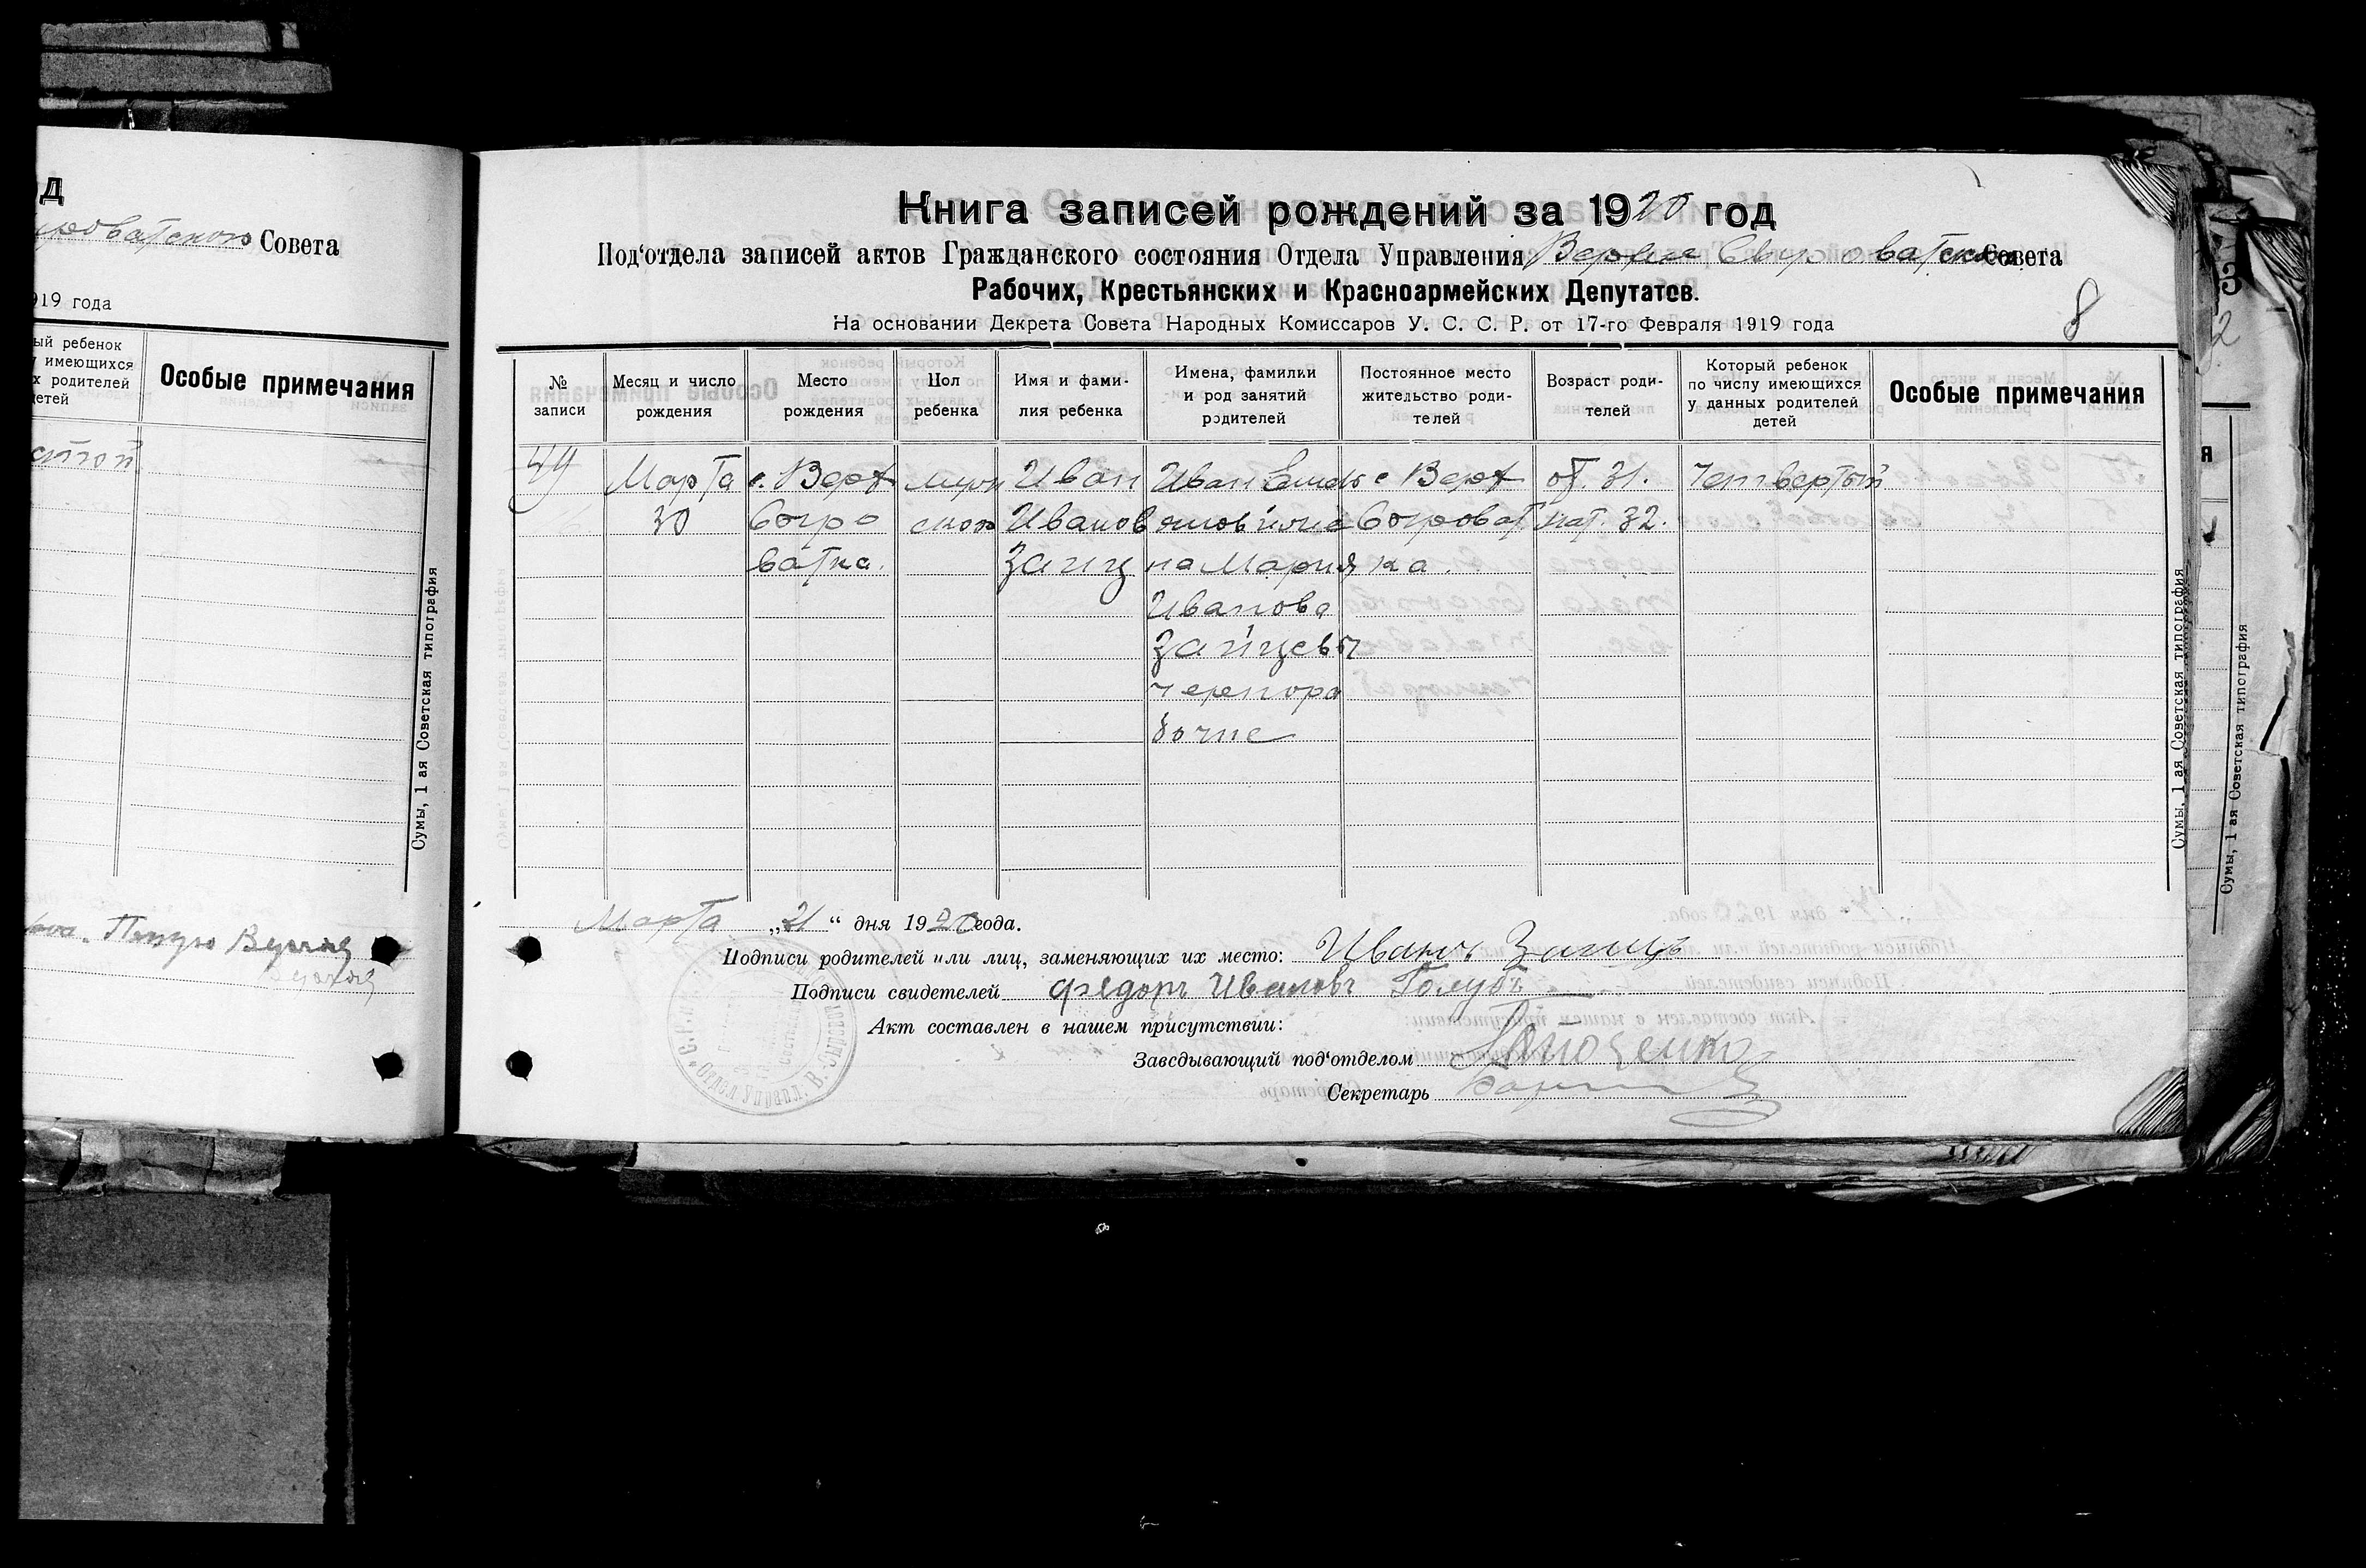 д
Совета
919 года
ый ребенок
у имеющихся
х родителей
детей
Особые примечания
Сумы, 1 ая Советская типография
Книга записей рождений за 1920 год
Под'отдела записей актов Гражданского состояния Отдела Управления Верхне Сыроватского Совета
Рабочих, Крестьянских и Красноармейских Депутатов.
На основании Декрета Совета Народных Комиссаров У. С. С. Р. от 17-го Февраля 1919 года
8
№ записи
Месяц и число рождения
Место рождения
Пол ребенка
Имя и фами-
лия ребенка
Имена, фамилии
и род занятий
родителей
Постоянное место
жительство роди-
телей
Возраст роди-
телей
Который ребенок
по числу имеющихся
у данных родителей
детей
Особые примечания
49 Марта с. Верх Иван Иван с Верх от. 31. Четвертый
30 Сыро ской Иванов Сыроват мат. 32.
ватка. Заяц на Мария ка.
Иванова
Зайцевы
чернора
бочие
Сумы, 1 ая Советская типография
Марта „21“ дня 1920 года.
Подписи родителей или лиц, заменяющих их место: Иванъ Заицъ
Подписи свидетелей Федоръ Ивановъ Голубъ
Акт составлен в нашем присутствии:
Заведывающий под'отделом
Секретарь
3
2
я
Сумы, 1 ая Советская типография